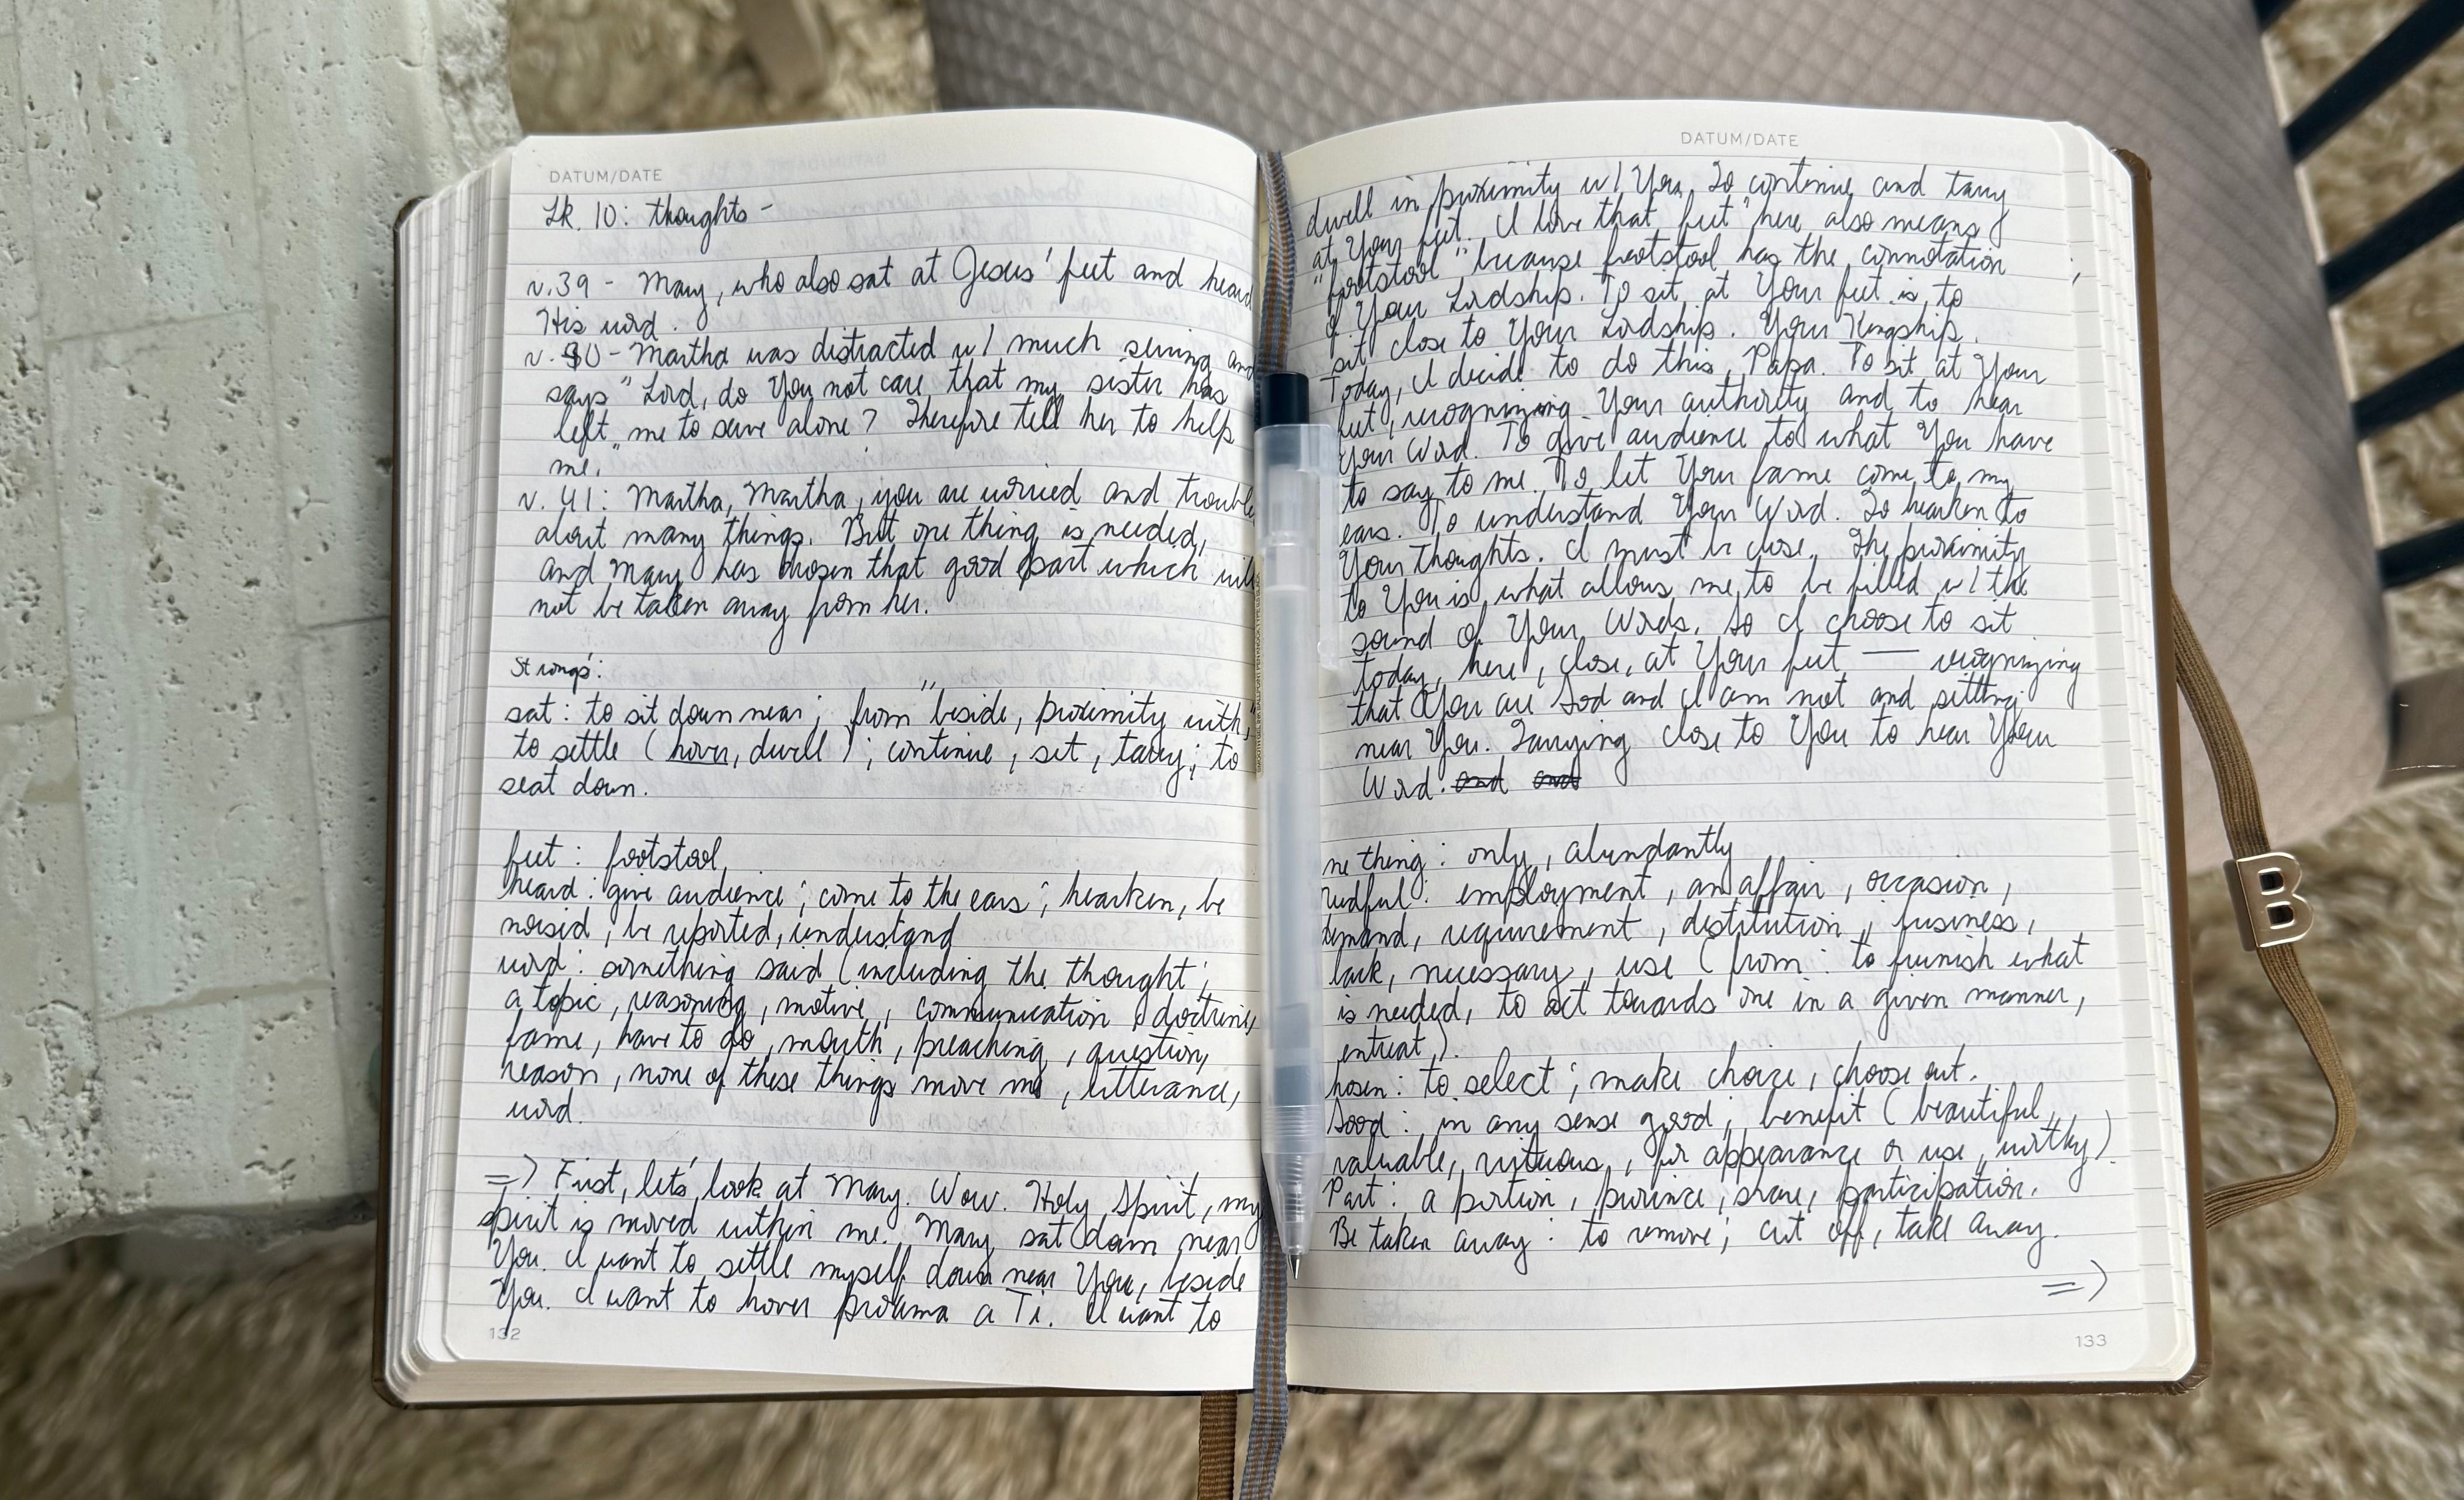 DATUM/DATE
Lk. 10: thoughts -
v.39 - Mary, who also sat at Jesus' feet and heard
His word.
v. 40 - Martha was distracted w/ much serving and
says "Lord, do You not care that my sister has
left me to serve alone? Therefore tell her to help
me."
v. 41: Martha, Martha, you are worried and trouble
about many things. But one thing is needed,
and Mary has chosen that good part which will
not be taken away from her.
Strong's:
sat: to sit down near; from "beside, proximity with,"
to settle (hover, dwell); continue, set, tarry; to
seat down.
feet: footstool
heard: give audience; come to the ears; hearken, be
noised, be reported, understand
word: something said (including the thought;
a topic, reasoning, motive, communication, doctrine,
fame, have to do, mouth, preaching, question,
reason, none of these things move me, utterance,
word.
=> First, let's look at Mary. Wow. Holy Spirit, my
spirit is moved within me. Mary sat down near
You. I want to settle myself down near You, beside
You. I want to hover próxima a Ti. I want to
132
DATUM/DATE
dwell in proximity w/ You. To continue and tarry
at Your feet. I love that "feet" here also means
"footstool" because footstool has the connotation
of Your Lordship. To sit at Your feet is to
sit close to Your Lordship. Your Kingship.
Today, I decide to do this, Papa. To sit at Your
feet, recognizing Your authority and to hear
Your Word. To give audience to what You have
to say to me. To let Your fame come to my
ears. To understand Your Word. To hearken to
Your thoughts. I must be close. The proximity
to You is what allows me to be filled w/ the
sound of Your Words. So I choose to sit
today, here, close, at Your feet — recognizing
that You are God and I am not and sitting
near You. Tarrying close to You to hear Your
Word. and and
ne thing: only, abundantly
needful: employment, an affair, occasion,
demand, requirement, destitution, business,
lack, necessary, use (from: to furnish what
is needed, to act towards one in a given manner,
entreat).
hosen: to select; make choice, choose out.
Good: in any sense good; benefit (beautiful,
valuable, virtuous, for appearance or use, worthy).
Part: a portion, province, share, participation.
Be taken away: to remove; cut off, take away.
=>
133
B